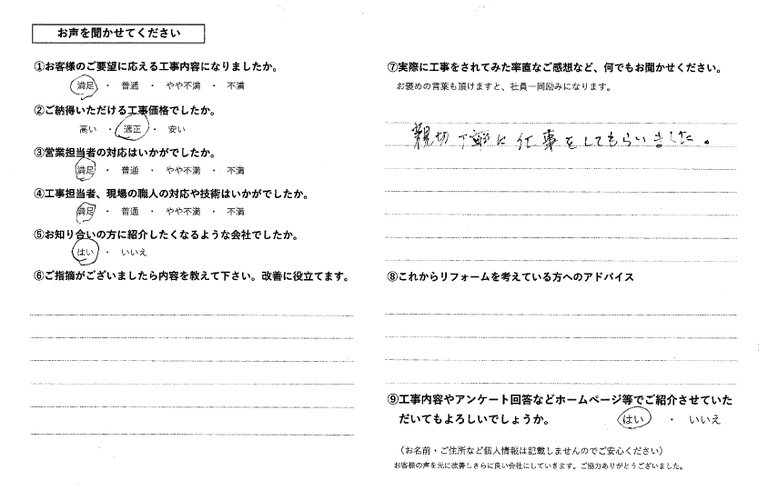 お声を聞かせてください
①お客様のご要望に応える工事内容になりましたか。
満足 ・ 普通 ・ やや不満 ・ 不満
②ご納得いただける工事価格でしたか。
高い ・ 適正 ・ 安い
③営業担当者の対応はいかがでしたか。
満足 ・ 普通 ・ やや不満 ・ 不満
④工事担当者、現場の職人の対応や技術はいかがでしたか。
満足 ・ 普通 ・ やや不満 ・ 不満
⑤お知り合いの方に紹介したくなるような会社でしたか。
はい ・ いいえ
⑥ご指摘がございましたら内容を教えて下さい。改善に役立てます。
⑦実際に工事をされてみた率直なご感想など、何でもお聞かせください。
お褒めの言葉も頂けますと、社員一同励みになります。
親切丁寧に仕事をしてもらいました。
⑧これからリフォームを考えている方へのアドバイス
⑨工事内容やアンケート回答などホームページ等でご紹介させていた
だいてもよろしいでしょうか。 はい ・ いいえ
（お名前・ご住所など個人情報は記載しませんのでご安心ください）
お客様の声を元に改善しさらに良い会社にしていきます。ご協力ありがとうございました。